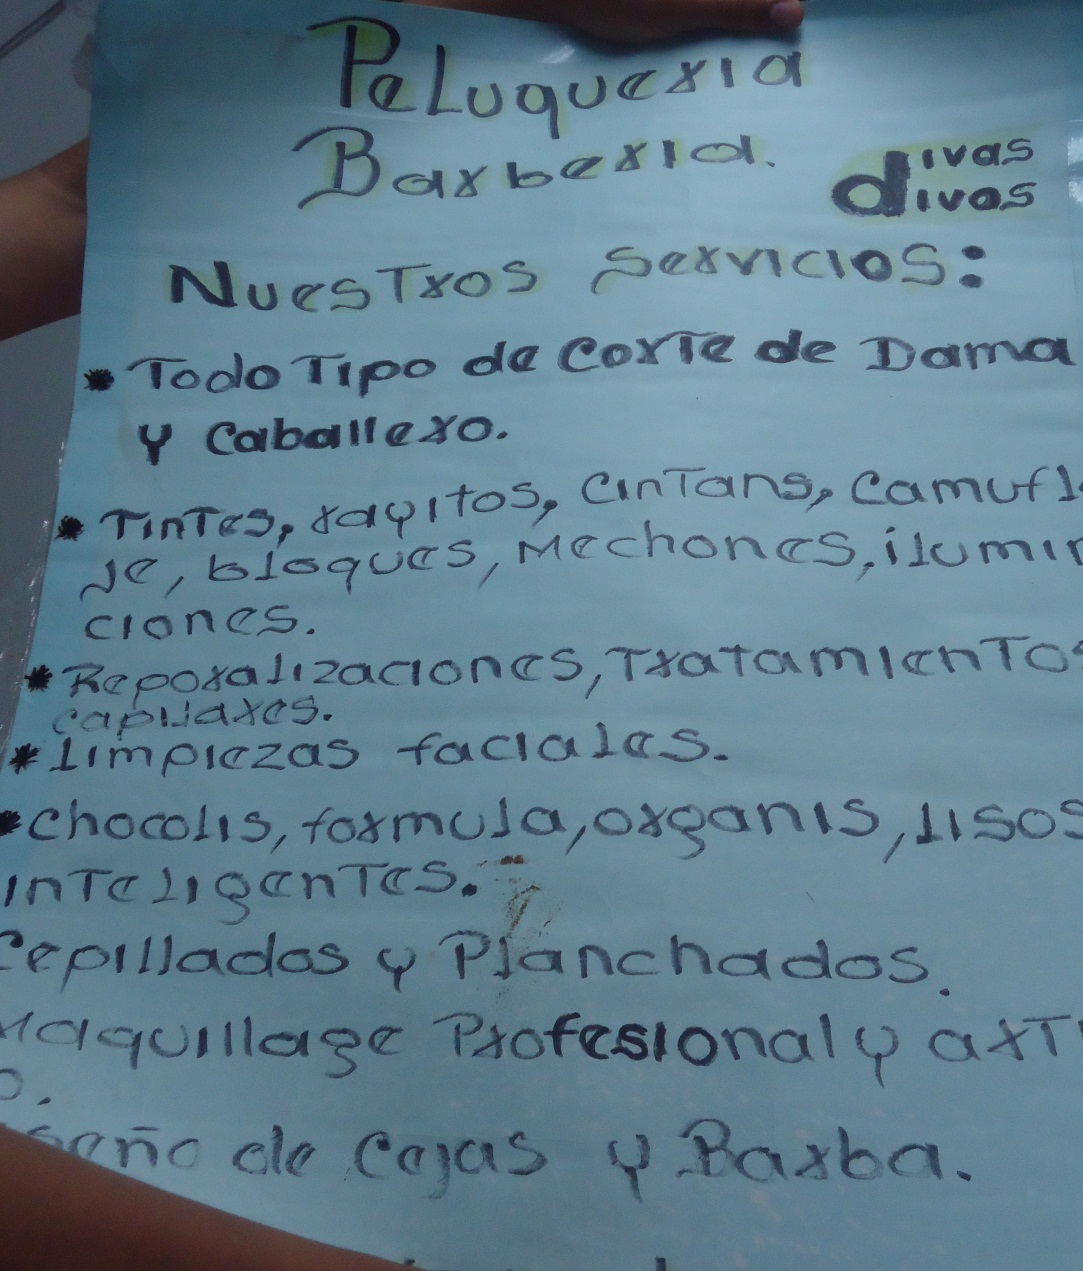 Peluqueria
Barberia.
divas
divos
Nuestros Servicios:
* Todo Tipo de Corte de Dama
y Caballero.
* Tintes, rayitos, Cintans, Camufl
Je, bloques, Mechones, ilumin
ciones.
* Reporalizaciones, Tratamientos
capilares.
* Limpiezas faciales.
* chocolis, formula, organis, lisos
inteligentes.
Cepillados y Planchados.
Maquillage Profesional y arti
o.
seño de Cejas y Barba.